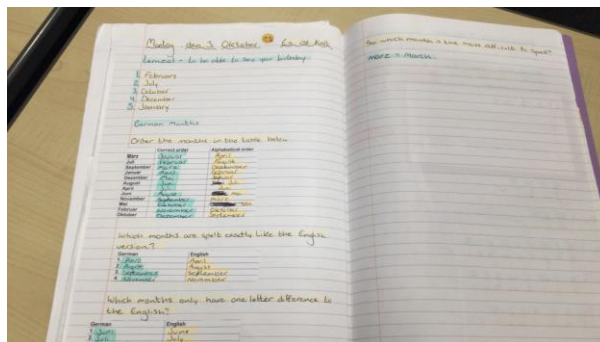 Montag, den 3. Oktober
Lernziel - to be able to say your birthday
1. February
2. July
3. October
4. December
5. January
German Months
Order the months in the table below
Correct order Alphabetical order
März Januar April
Juli Februar August
September März Dezember
Januar April Februar
Dezember Mai Januar
August Juni Juli
April Juli Juni
Juni August Mai
November September März
Mai Oktober
Februar November Oktober
Oktober Dezember September
Which months are spelt exactly like the English
version?
German English
1. April April
2. August August
3. September September
4. November November
Which months only have one letter difference to
the English?
German English
1. Juni June
2. Juli July
So which month is the more difficult to spell?
März = March.